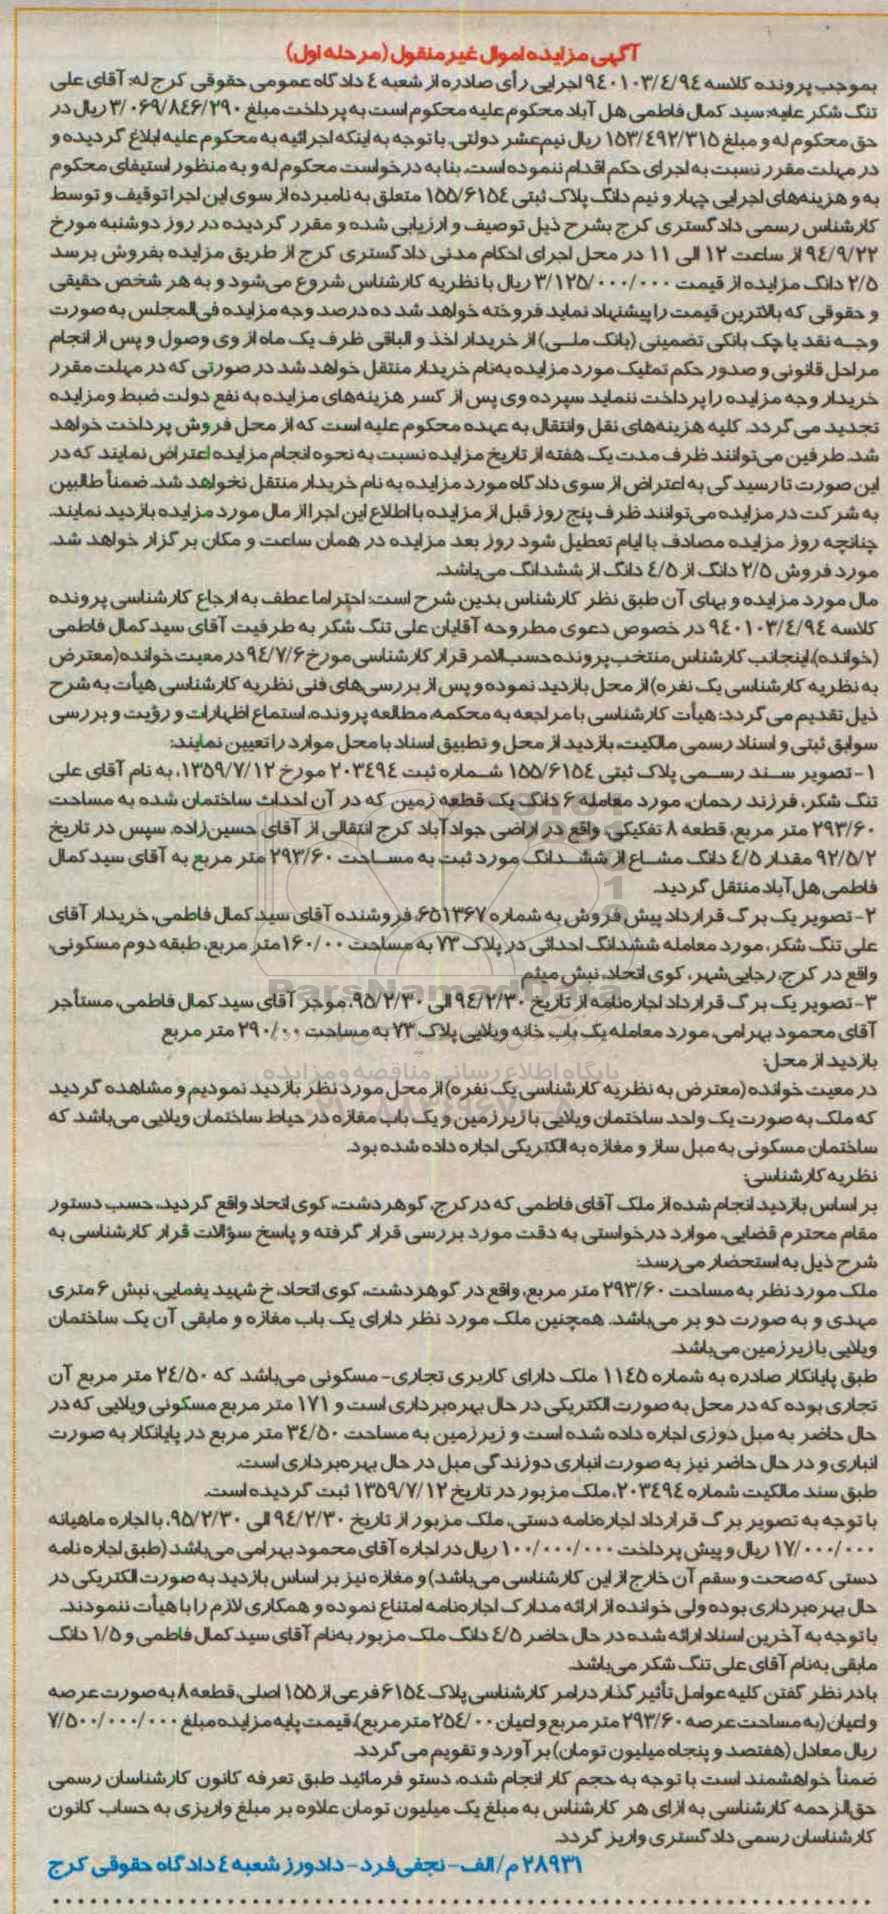 آگهی مزایده اموال غیرمنقول (مرحله اول)
بموجب پرونده کلاسه ۹۴۰۱۰۳/۴/۹۴ اجرایی رأی صادره از شعبه ۴ دادگاه عمومی حقوقی کرج له: آقای علی
تنگ شکر علیه: سید کمال فاطمی هل آباد محکوم علیه محکوم است به پرداخت مبلغ ۳/۰۶۹/۸۴۶/۲۹۰ ریال در
حق محکوم له و مبلغ ۱۵۳/۴۹۲/۳۱۵ ریال نیم‌عشر دولتی. با توجه به اینکه اجرائیه به محکوم علیه ابلاغ گردیده و
در مهلت مقرر نسبت به اجرای حکم اقدام ننموده است. بنا به درخواست محکوم له و به منظور استیفای محکوم
به و هزینه‌های اجرایی چهار و نیم دانگ پلاک ثبتی ۱۵۵/۶۱۵۴ متعلق به نامبرده از سوی این اجرا توقیف و توسط
کارشناس رسمی دادگستری کرج بشرح ذیل توصیف و ارزیابی شده و مقرر گردیده در روز دوشنبه مورخ
۹۴/۹/۲۲ از ساعت ۱۲ الی ۱۱ در محل اجرای احکام مدنی دادگستری کرج از طریق مزایده بفروش برسد
۲/۵ دانگ مزایده از قیمت ۳/۱۲۵/۰۰۰/۰۰۰ ریال با نظریه کارشناس شروع می‌شود و به هر شخص حقیقی
و حقوقی که بالاترین قیمت را پیشنهاد نماید فروخته خواهد شد ده درصد وجه مزایده فی‌المجلس به صورت
وجه نقد یا چک بانکی تضمینی (بانک ملی) از خریدار اخذ و الباقی ظرف یک ماه از وی وصول و پس از انجام
مراحل قانونی و صدور حکم تملیک مورد مزایده به‌نام خریدار منتقل خواهد شد در صورتی که در مهلت مقرر
خریدار وجه مزایده را پرداخت ننماید سپرده وی پس از کسر هزینه‌های مزایده به نفع دولت ضبط ومزایده
تجدید می‌گردد. کلیه هزینه‌های نقل وانتقال به عهده محکوم علیه است که از محل فروش پرداخت خواهد
شد. طرفین می‌توانند ظرف مدت یک هفته از تاریخ مزایده نسبت به نحوه انجام مزایده اعتراض نمایند که در
این صورت تا رسیدگی به اعتراض از سوی دادگاه مورد مزایده به نام خریدار منتقل نخواهد شد. ضمناً طالبین
به شرکت در مزایده می‌توانند ظرف پنج روز قبل از مزایده با اطلاع این اجرا از مال مورد مزایده بازدید نمایند.
چنانچه روز مزایده مصادف با ایام تعطیل شود روز بعد مزایده در همان ساعت و مکان برگزار خواهد شد.
مورد فروش ۲/۵ دانگ از ۴/۵ دانگ از ششدانگ می‌باشد.
مال مورد مزایده و بهای آن طبق نظر کارشناس بدین شرح است: احتراما عطف به ارجاع کارشناسی پرونده
کلاسه ۹۴۰۱۰۳/۴/۹۴ در خصوص دعوی مطروحه آقایان علی تنگ شکر به طرفیت آقای سید کمال فاطمی
(خوانده)، اینجانب کارشناس منتخب پرونده حسب‌الامر قرار کارشناسی مورخ ۹۴/۷/۶ در معیت خوانده (معترض
به نظریه کارشناسی یک نفره) از محل بازدید نموده و پس از بررسی‌های فنی نظریه کارشناسی هیأت به شرح
ذیل تقدیم می‌گردد: هیأت کارشناسی با مراجعه به محکمه، مطالعه پرونده، استماع اظهارات و رؤیت و بررسی
سوابق ثبتی و اسناد رسمی مالکیت، بازدید از محل و تطبیق اسناد با محل موارد را تعیین نمایند:
۱- تصویر سند رسمی پلاک ثبتی ۱۵۵/۶۱۵۴ شماره ثبت ۲۰۳۴۹۴ مورخ ۱۳۵۹/۷/۱۲، به نام آقای علی
تنگ شکر، فرزند رحمان، مورد معامله ۶ دانگ یک قطعه زمین که در آن احداث ساختمان شده به مساحت
۲۹۳/۶۰ متر مربع، قطعه ۸ تفکیکی، واقع در اراضی جوادآباد کرج انتقالی از آقای حسین‌زاده. سپس در تاریخ
۹۲/۵/۲ مقدار ۴/۵ دانگ مشاع از ششدانگ مورد ثبت به مساحت ۲۹۳/۶۰ متر مربع به آقای سید کمال
فاطمی هل‌آباد منتقل گردید.
۲- تصویر یک برگ قرارداد پیش فروش به شماره ۶۵۱۳۶۷، فروشنده آقای سید کمال فاطمی، خریدار آقای
علی تنگ شکر، مورد معامله ششدانگ احداثی در پلاک ۷۳ به مساحت ۱۶۰/۰۰ متر مربع، طبقه دوم مسکونی،
واقع در کرج، رجایی‌شهر، کوی اتحاد، نبش میثم
۳- تصویر یک برگ قرارداد اجاره‌نامه از تاریخ ۹۴/۲/۳۰ الی ۹۵/۲/۳۰، موجر آقای سید کمال فاطمی، مستأجر
آقای محمود بهرامی، مورد معامله یک باب خانه ویلایی پلاک ۷۳ به مساحت ۲۹۰/۰۰ متر مربع
بازدید از محل:
در معیت خوانده (معترض به نظریه کارشناسی یک نفره) از محل مورد نظر بازدید نمودیم و مشاهده گردید
که ملک به صورت یک واحد ساختمان ویلایی با زیرزمین و یک باب مغازه در حیاط ساختمان ویلایی می‌باشد که
ساختمان مسکونی به مبل ساز و مغازه به الکتریکی اجاره داده شده بود.
نظریه کارشناسی:
بر اساس بازدید انجام شده از ملک آقای فاطمی که در کرج، گوهردشت، کوی اتحاد واقع گردید، حسب دستور
مقام محترم قضایی، موارد درخواستی به دقت مورد بررسی قرار گرفته و پاسخ سؤالات قرار کارشناسی به
شرح ذیل به استحضار می‌رسد:
ملک مورد نظر به مساحت ۲۹۳/۶۰ متر مربع، واقع در گوهردشت، کوی اتحاد، خ شهید یغمایی، نبش ۶ متری
مهدی و به صورت دو بر می‌باشد. همچنین ملک مورد نظر دارای یک باب مغازه و مابقی آن یک ساختمان
ویلایی با زیرزمین می‌باشد.
طبق پایانکار صادره به شماره ۱۱۴۵ ملک دارای کاربری تجاری- مسکونی می‌باشد که ۲۴/۵۰ متر مربع آن
تجاری بوده که در محل به صورت الکتریکی در حال بهره‌برداری است و ۱۷۱ متر مربع مسکونی ویلایی که در
حال حاضر به مبل دوزی اجاره داده شده است و زیرزمین به مساحت ۳۴/۵۰ متر مربع در پایانکار به صورت
انباری و در حال حاضر نیز به صورت انباری دوزندگی مبل در حال بهره‌برداری است.
طبق سند مالکیت شماره ۲۰۳۴۹۴، ملک مزبور در تاریخ ۱۳۵۹/۷/۱۲ ثبت گردیده است.
با توجه به تصویر برگ قرارداد اجاره‌نامه دستی، ملک مزبور از تاریخ ۹۴/۲/۳۰ الی ۹۵/۲/۳۰، با اجاره ماهیانه
۱۷/۰۰۰/۰۰۰ ریال و پیش پرداخت ۱۰۰/۰۰۰/۰۰۰ ریال در اجاره آقای محمود بهرامی می‌باشد (طبق اجاره نامه
دستی که صحت و سقم آن خارج از این کارشناسی می‌باشد) و مغازه نیز بر اساس بازدید به صورت الکتریکی در
حال بهره‌برداری بوده ولی خوانده از ارائه مدارک اجاره‌نامه امتناع نموده و همکاری لازم را با هیأت ننمودند.
با توجه به آخرین اسناد ارائه شده در حال حاضر ۴/۵ دانگ ملک مزبور به‌نام آقای سید کمال فاطمی و ۱/۵ دانگ
مابقی به‌نام آقای علی تنگ شکر می‌باشد.
با در نظر گفتن کلیه عوامل تأثیر گذار در امر کارشناسی پلاک ۶۱۵۴ فرعی از ۱۵۵ اصلی، قطعه ۸ به صورت عرصه
و اعیان (به مساحت عرصه ۲۹۳/۶۰ متر مربع و اعیان ۲۵۴/۰۰ متر مربع)، قیمت پایه مزایده مبلغ ۷/۵۰۰/۰۰۰/۰۰۰
ریال معادل (هفتصد و پنجاه میلیون تومان) برآورد و تقویم می‌گردد.
ضمناً خواهشمند است با توجه به حجم کار انجام شده، دستو فرمائید طبق تعرفه کانون کارشناسان رسمی
حق‌الزحمه کارشناسی به ازای هر کارشناس به مبلغ یک میلیون تومان علاوه بر مبلغ واریزی به حساب کانون
کارشناسان رسمی دادگستری واریز گردد.
۲۸۹۳۱ م/الف- نجفی‌فرد- دادورز شعبه ۴ دادگاه حقوقی کرج
ParsNamadData
پایگاه اطلاع رسانی مناقصه و مزایده